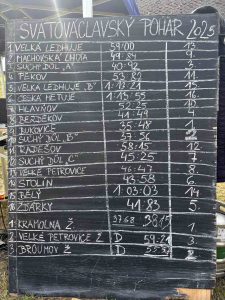 SVATOVÁCLAVSKÝ POHÁR 2025
1 VELKÁ LEDHUJE 59:00 13
2 MACHOVSKÁ LHOTA 49:84
3 SUCHÝ DŮL „A"
4 PĚKOV 53:82 11
5 VELKÁ LEDHUJE „B" 1:13:21 15
6 ČESKÁ METUJE 1:13:55 16
HLAVŇOV 52:25
BEZDĚKOV 41:49 4
BUKOVICE 35:48 1
SUCHÝ DŮL „B" 2
KAJEŠOV 58:15 12
SUCHÝ DŮL „C" 45:25 7
VELKÉ PETROVICE 46:47 8
STOLÍN 43:58 6
BĚLÝ 1:03:03 14
ŽĎÁRKY 41:83 5
1 KRAMOLNA Ž. 37:68 38:15 1
2 VELKÉ PETROVICE Ž D 59:21 3
3 BROUMOV Ž D 2